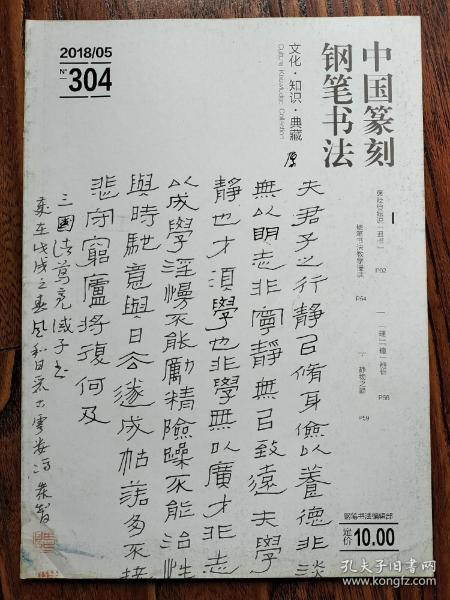 2018/05
Nº 304
中国篆刻
钢笔书法
文化·知识·典藏
Culture Knowledge Collection
P02
P64
P56
静物之爵
P59
夫君子之行靜以脩身儉以養德非淡
無以明志非寧靜無以致遠夫學
靜也才須學也非學無以廣才非志
以成學淫慢不能勵精險躁不能治性
與時馳意與日去遂成枯落多不接
悲守窮廬將復何及
三國諸葛亮誡子書
钢笔书法编辑部
定价 10.00
孔夫子旧书网